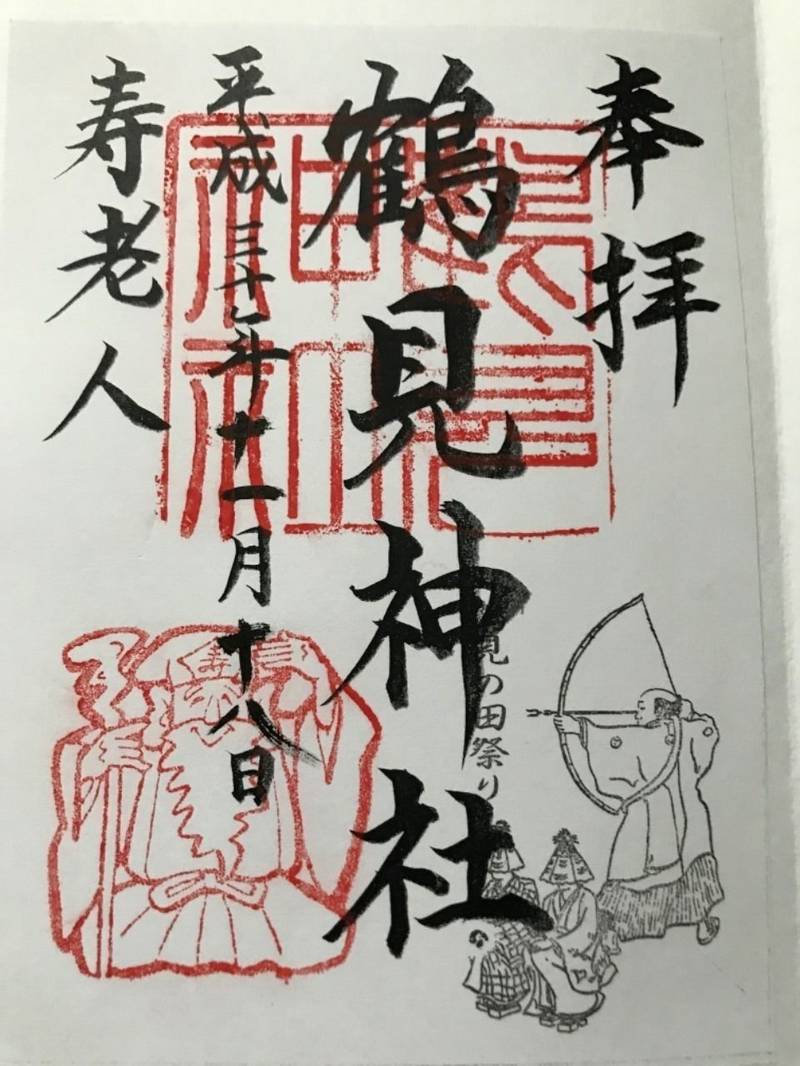 奉拝
鶴見神社
見の田祭り
平成三十年十一月十八日
寿老人